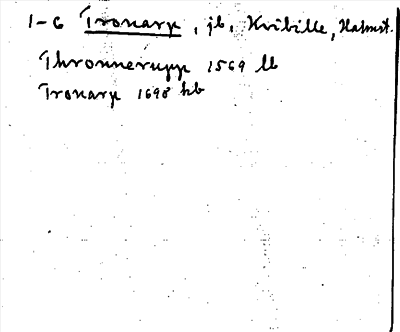 1-6 Tronarp, jb, Kvibille, Halmst.
Thronnerupp 1569 lb
Tronarp 1698 hb